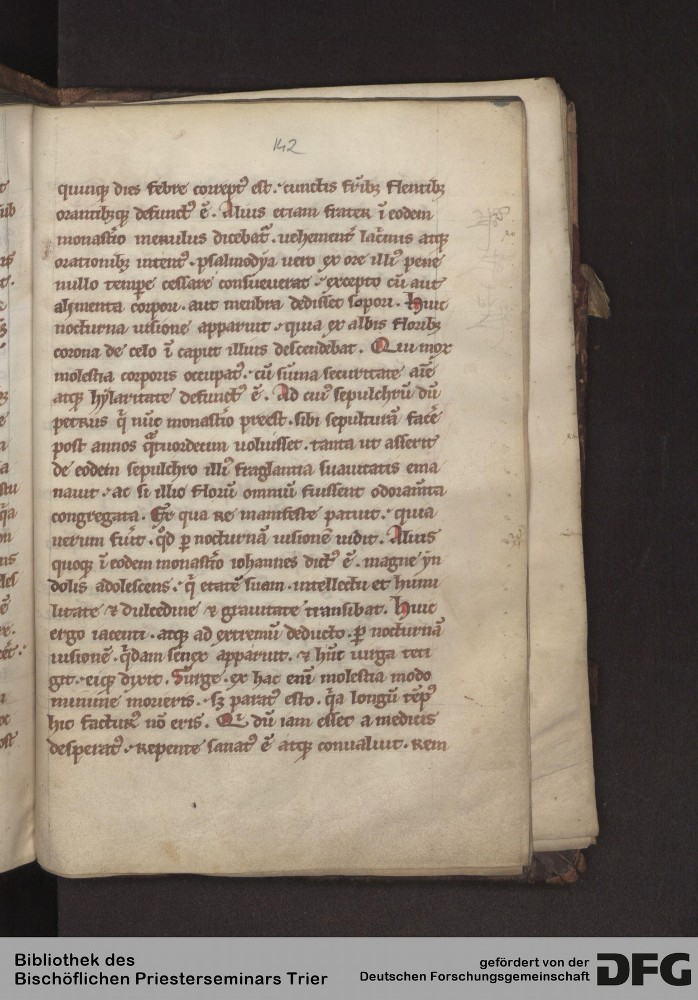 142
quinq; dies febre corrept᾽ est.᾽ cunctis fr̄ib; flentib;
orantib;q; defunct᾽ ē. Alius etiam frater ī eodem
monast̄io merulus dicebat᾽. uehement̄ lac̄imis atq;
orationib; intent᾽. psalmodya uero ex ore illi᾽ pene
nullo tempe cessare consueuerat.᾽ excepto cū aut
alimenta corpori. aut menbra dedisset sopori. Huic
nocturna uisione apparuit.᾽ quia ex albis florib;
corona de celo ī caput illius descendebat. Qui mox
molestia corporis occupat᾽.᾽ cū sūma securitate aīe
atq; hylaritate defunct᾽ ē. Ad cui᾽ sepulchrū dū
petrus q̄ nūc monast̄io preest. sibi sepulturā facē
post annos q̄tuordecim uoluisset. tanta ut asserit
de eodem sepulchro illi᾽ fraglantia suauitatis ema
nauit.᾽ ac si illic florū omniū fuissent odoram̄ta
congregata. Ex qua re manifeste patuit.᾽ quia
uerum fuit̄. q̊d p nocturnā uisionē uidit. Alius
quoq; ī eodem monast̄io iohannes dict᾽ ē. magne yn
dolis adolescens.᾽ q̄ etatē suam. intellectu et humi
litate ⁊ dulcedine ⁊ grauitate transibat. Huic
ergo iacenti. atq; ad extremū deducto. p nocturnā
uisionē. q̄dam senex apparuit. ⁊ hūc uirga teti
git.᾽ eiq; dixit. Surge. ex hac eni᾽ molestia modo
minime morieris.᾽ s; parat᾽ esto. q̄a longū tēp᾽
hic factur᾽ nō eris. Qi. dū iam esset a medicis
desperat᾽.᾽ repente sanat᾽ ē atq; conualuit. Rem
Bibliothek des
Bischöflichen Priesterseminars Trier
gefördert von der
Deutschen Forschungsgemeinschaft
DFG